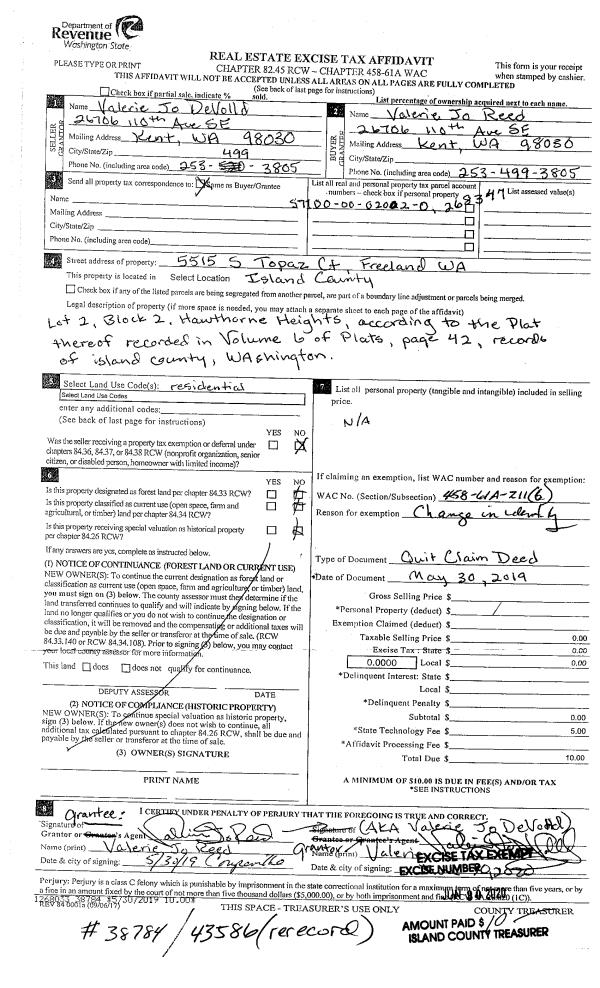 Department of
Revenue
Washington State
REAL ESTATE EXCISE TAX AFFIDAVIT
PLEASE TYPE OR PRINT
CHAPTER 82.45 RCW – CHAPTER 458-61A WAC
This form is your receipt
when stamped by cashier.
THIS AFFIDAVIT WILL NOT BE ACCEPTED UNLESS ALL AREAS ON ALL PAGES ARE FULLY COMPLETED
(See back of last page for instructions)
Check box if partial sale, indicate % sold.
List percentage of ownership acquired next to each name.
1
SELLER GRANTOR
Name Valerie Jo DeVolld
26706 110th Ave SE
Mailing Address Kent, WA 98030
City/State/Zip
499
Phone No. (including area code) 253- - 3805
2
BUYER GRANTEE
Name Valerie Jo Reed
26706 110th Ave SE
Mailing Address Kent, WA 98030
City/State/Zip
Phone No. (including area code) 253-499-3805
3
Send all property tax correspondence to: Same as Buyer/Grantee
Name
Mailing Address
City/State/Zip
Phone No. (including area code)
List all real and personal property tax parcel account
numbers – check box if personal property
List assessed value(s)
4
Street address of property: 5515 S Topaz Ct, Freeland WA
This property is located in Select Location Island County
Check box if any of the listed parcels are being segregated from another parcel, are part of a boundary line adjustment or parcels being merged.
Legal description of property (if more space is needed, you may attach a separate sheet to each page of the affidavit)
Lot 2, Block 2, Hawthorne Heights, according to the Plat
thereof recorded in Volume 6 of Plats, page 42, records
of island county, WAshington.
5
Select Land Use Code(s): residential
Select Land Use Codes
enter any additional codes:
(See back of last page for instructions)
YES NO
Was the seller receiving a property tax exemption or deferral under
chapters 84.36, 84.37, or 84.38 RCW (nonprofit organization, senior
citizen, or disabled person, homeowner with limited income)?
6
YES NO
Is this property designated as forest land per chapter 84.33 RCW?
Is this property classified as current use (open space, farm and
agricultural, or timber) land per chapter 84.34 RCW?
Is this property receiving special valuation as historical property
per chapter 84.26 RCW?
If any answers are yes, complete as instructed below.
(1) NOTICE OF CONTINUANCE (FOREST LAND OR CURRENT USE)
NEW OWNER(S): To continue the current designation as forest land or
classification as current use (open space, farm and agriculture, or timber) land,
you must sign on (3) below. The county assessor must then determine if the
land transferred continues to qualify and will indicate by signing below. If the
land no longer qualifies or you do not wish to continue the designation or
classification, it will be removed and the compensating or additional taxes will
be due and payable by the seller or transferor at the time of sale. (RCW
84.33.140 or RCW 84.34.108). Prior to signing (3) below, you may contact
your local county assessor for more information.
This land does does not qualify for continuance.
DEPUTY ASSESSOR DATE
(2) NOTICE OF COMPLIANCE (HISTORIC PROPERTY)
NEW OWNER(S): To continue special valuation as historic property,
sign (3) below. If the new owner(s) does not wish to continue, all
additional tax calculated pursuant to chapter 84.26 RCW, shall be due and
payable by the seller or transferor at the time of sale.
(3) OWNER(S) SIGNATURE
PRINT NAME
7
List all personal property (tangible and intangible) included in selling
price.
N/A
If claiming an exemption, list WAC number and reason for exemption:
WAC No. (Section/Subsection) 458-WA-211(6)
Reason for exemption Change in identity
Type of Document Quit Claim Deed
*Date of Document May 30, 2019
Gross Selling Price $
*Personal Property (deduct) $
Exemption Claimed (deduct) $
Taxable Selling Price $ 0.00
Excise Tax : State $ 0.00
0.0000 Local $ 0.00
*Delinquent Interest: State $
Local $
*Delinquent Penalty $
Subtotal $ 0.00
*State Technology Fee $ 5.00
*Affidavit Processing Fee $
Total Due $ 10.00
A MINIMUM OF $10.00 IS DUE IN FEE(S) AND/OR TAX
*SEE INSTRUCTIONS
8
I CERTIFY UNDER PENALTY OF PERJURY THAT THE FOREGOING IS TRUE AND CORRECT.
Grantee:
Signature of
Grantor or Grantee's Agent
Name (print) Valerie Jo Reed
Date & city of signing: 5/30/19
Signature of (AKA Valerie Jo DeVolld)
Grantor or Grantee's Agent
Grantor
Name (print) Valerie
Date & city of signing:
EXCISE TAX EXEMPT
EXCISE NUMBER
Perjury: Perjury is a class C felony which is punishable by imprisonment in the state correctional institution for a maximum term of not more than five years, or by
a fine in an amount fixed by the court of not more than five thousand dollars ($5,000.00), or by both imprisonment and fine (1C)).
1268033 38784 5/30/2019 10.00
REV 84 0001a (09/06/17)
THIS SPACE - TREASURER'S USE ONLY
COUNTY TREASURER
# 38784 / 43586 (rerecord)
AMOUNT PAID $ 10
ISLAND COUNTY TREASURER